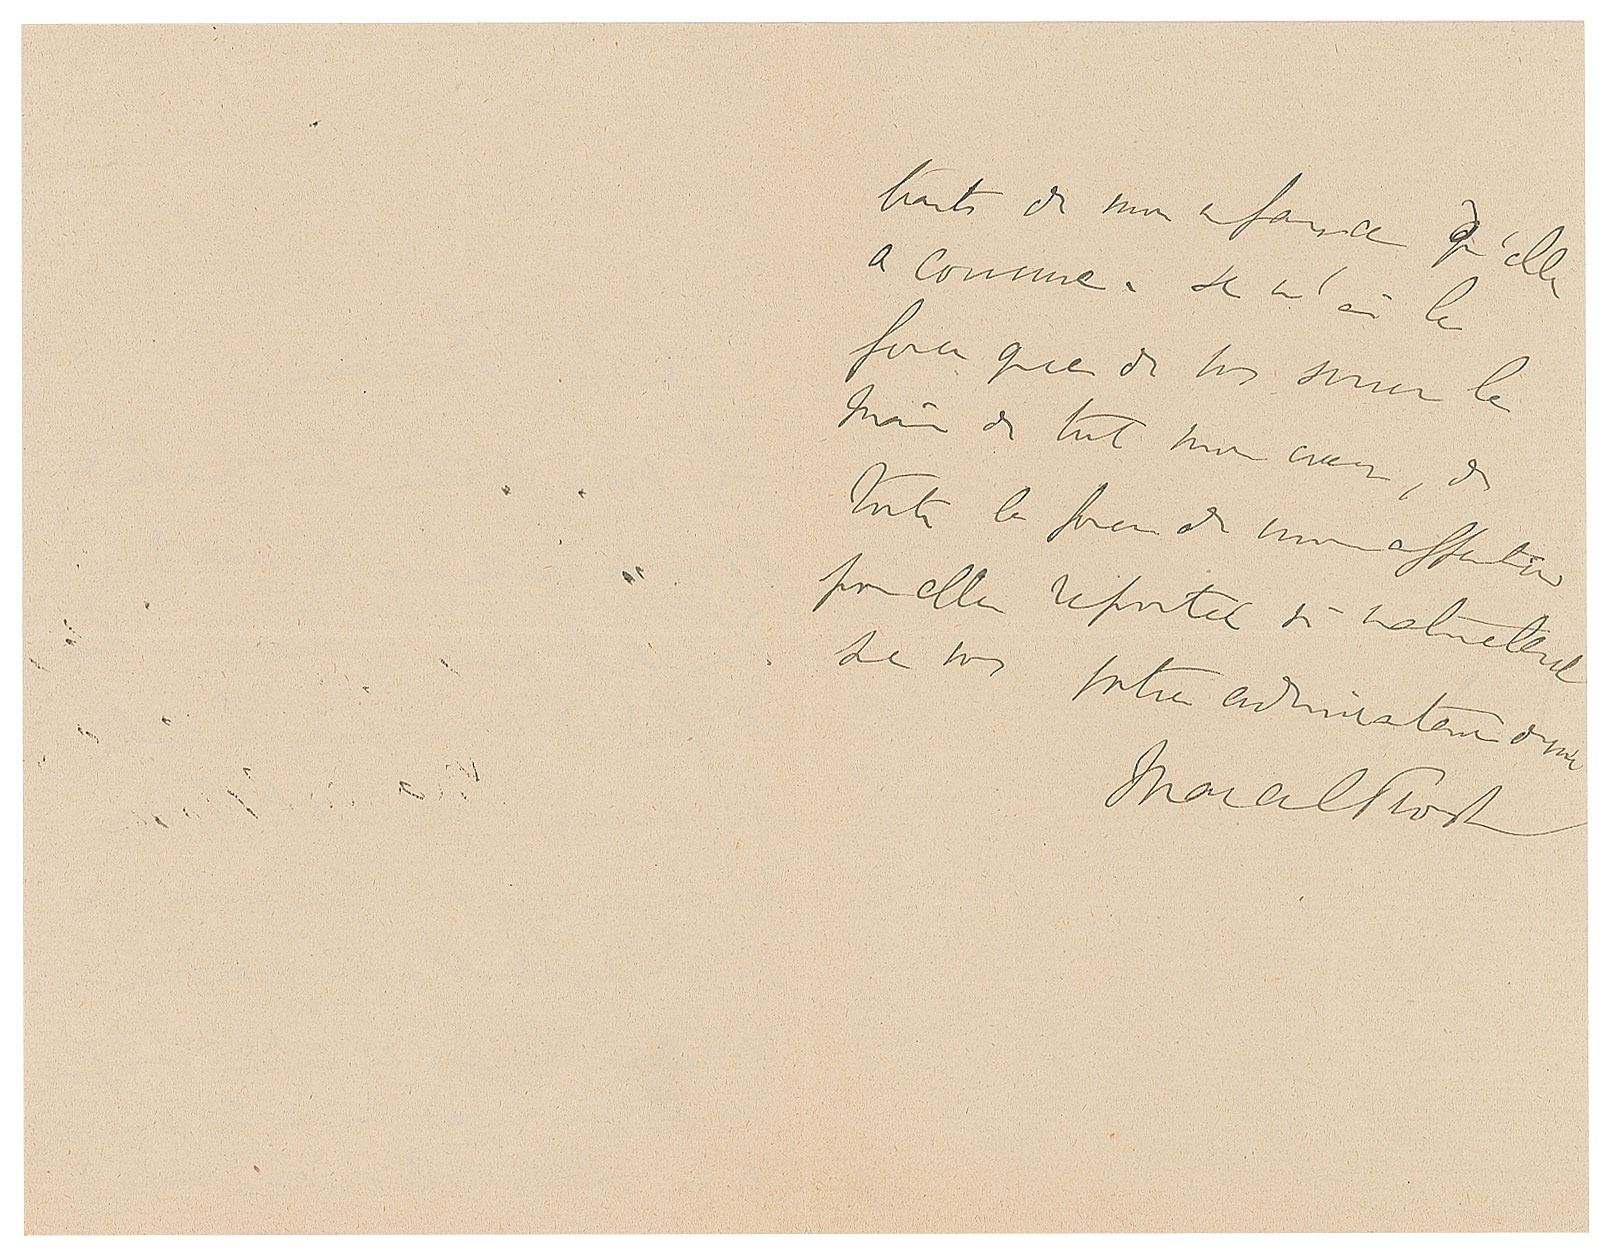 traits de mon enfance qu'elle
a connue. Je n'ai la
force que de vous serrer la
main de tout mon coeur, de
toute la force de mon affection
pour elle reportée si naturellement
sur vous votre
Marcel Proust